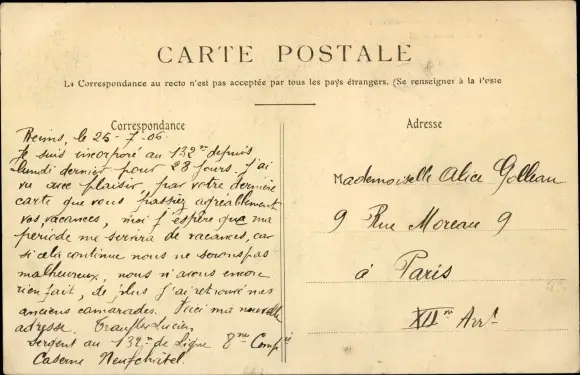 CARTE POSTALE
La Correspondance au recto n'est pas acceptée par tous les pays étrangers. (Se renseigner à la Poste
Correspondance
Reims, le 25-7-06
Je suis incorporé au 132me depuis
Lundi dernier pour 28 jours. J'ai
vu avec plaisir, par votre dernière
carte que vous passiez agréablement
vos vacances, moi j'espère que ma
période me servira de vacances, car
si cela continue nous ne serons pas
malheureux, nous n'avons encore
rien fait, de plus j'ai retrouvé mes
anciens camarades. Voici ma nouvelle
adresse. Lucien
Sergent au 132me de Ligne 8me Compie
Caserne Neufchâtel.
Adresse
Mademoiselle Alice Golleau
9 Rue Moreau 9
à Paris
XIIme Arrt